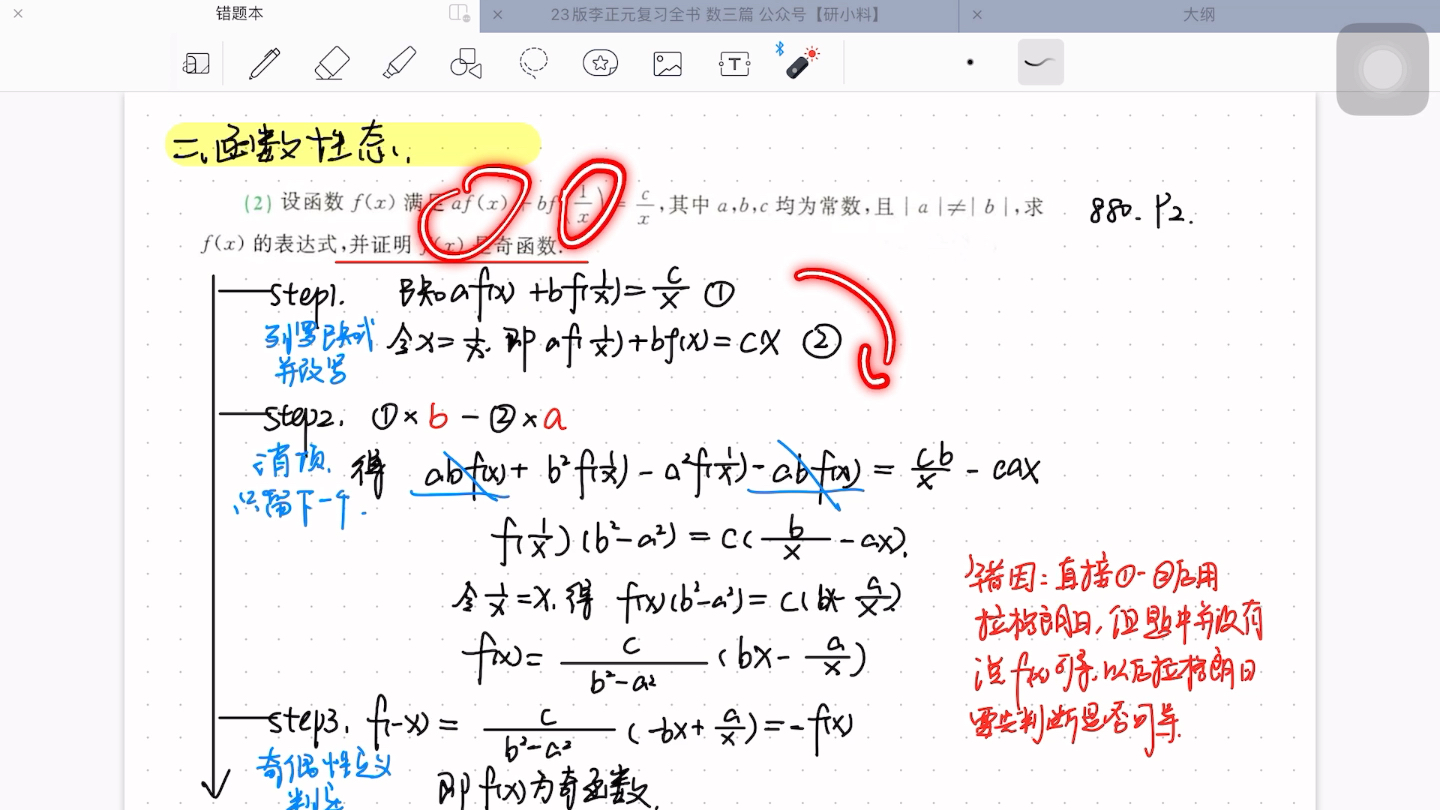 错题本
23版李正元复习全书 数三篇 公众号【研小料】
大纲
二、函数性态.
(2) 设函数 f(x) 满足 af(x)+bf(1/x)=c/x,其中 a,b,c 均为常数,且|a|≠|b|,求
f(x) 的表达式,并证明 f(x) 是奇函数.
880. P2.
step1. 已知 af(x)+bf(1/x)=c/x ①
列写已知式
并改写
令x=1/x. 即 af(1/x)+bf(x)=cx ②
step2. ①×b-②×a
消项.
只留下一个.
得 abf(x)+b²f(1/x)-a²f(1/x)-abf(x)=cb/x-cax
f(1/x)(b²-a²)=c(b/x-ax).
令1/x=x. 得 f(x)(b²-a²)=c(bx-a/x)
f(x)=c/(b²-a²)(bx-a/x)
错因:直接①-②后用
拉格朗日,但题中并没有
说f(x)可导,以后拉格朗日
需先判断是否可导.
step3. f(-x)=c/(b²-a²)(-bx+a/x)=-f(x)
奇偶性定义
即f(x)为奇函数.